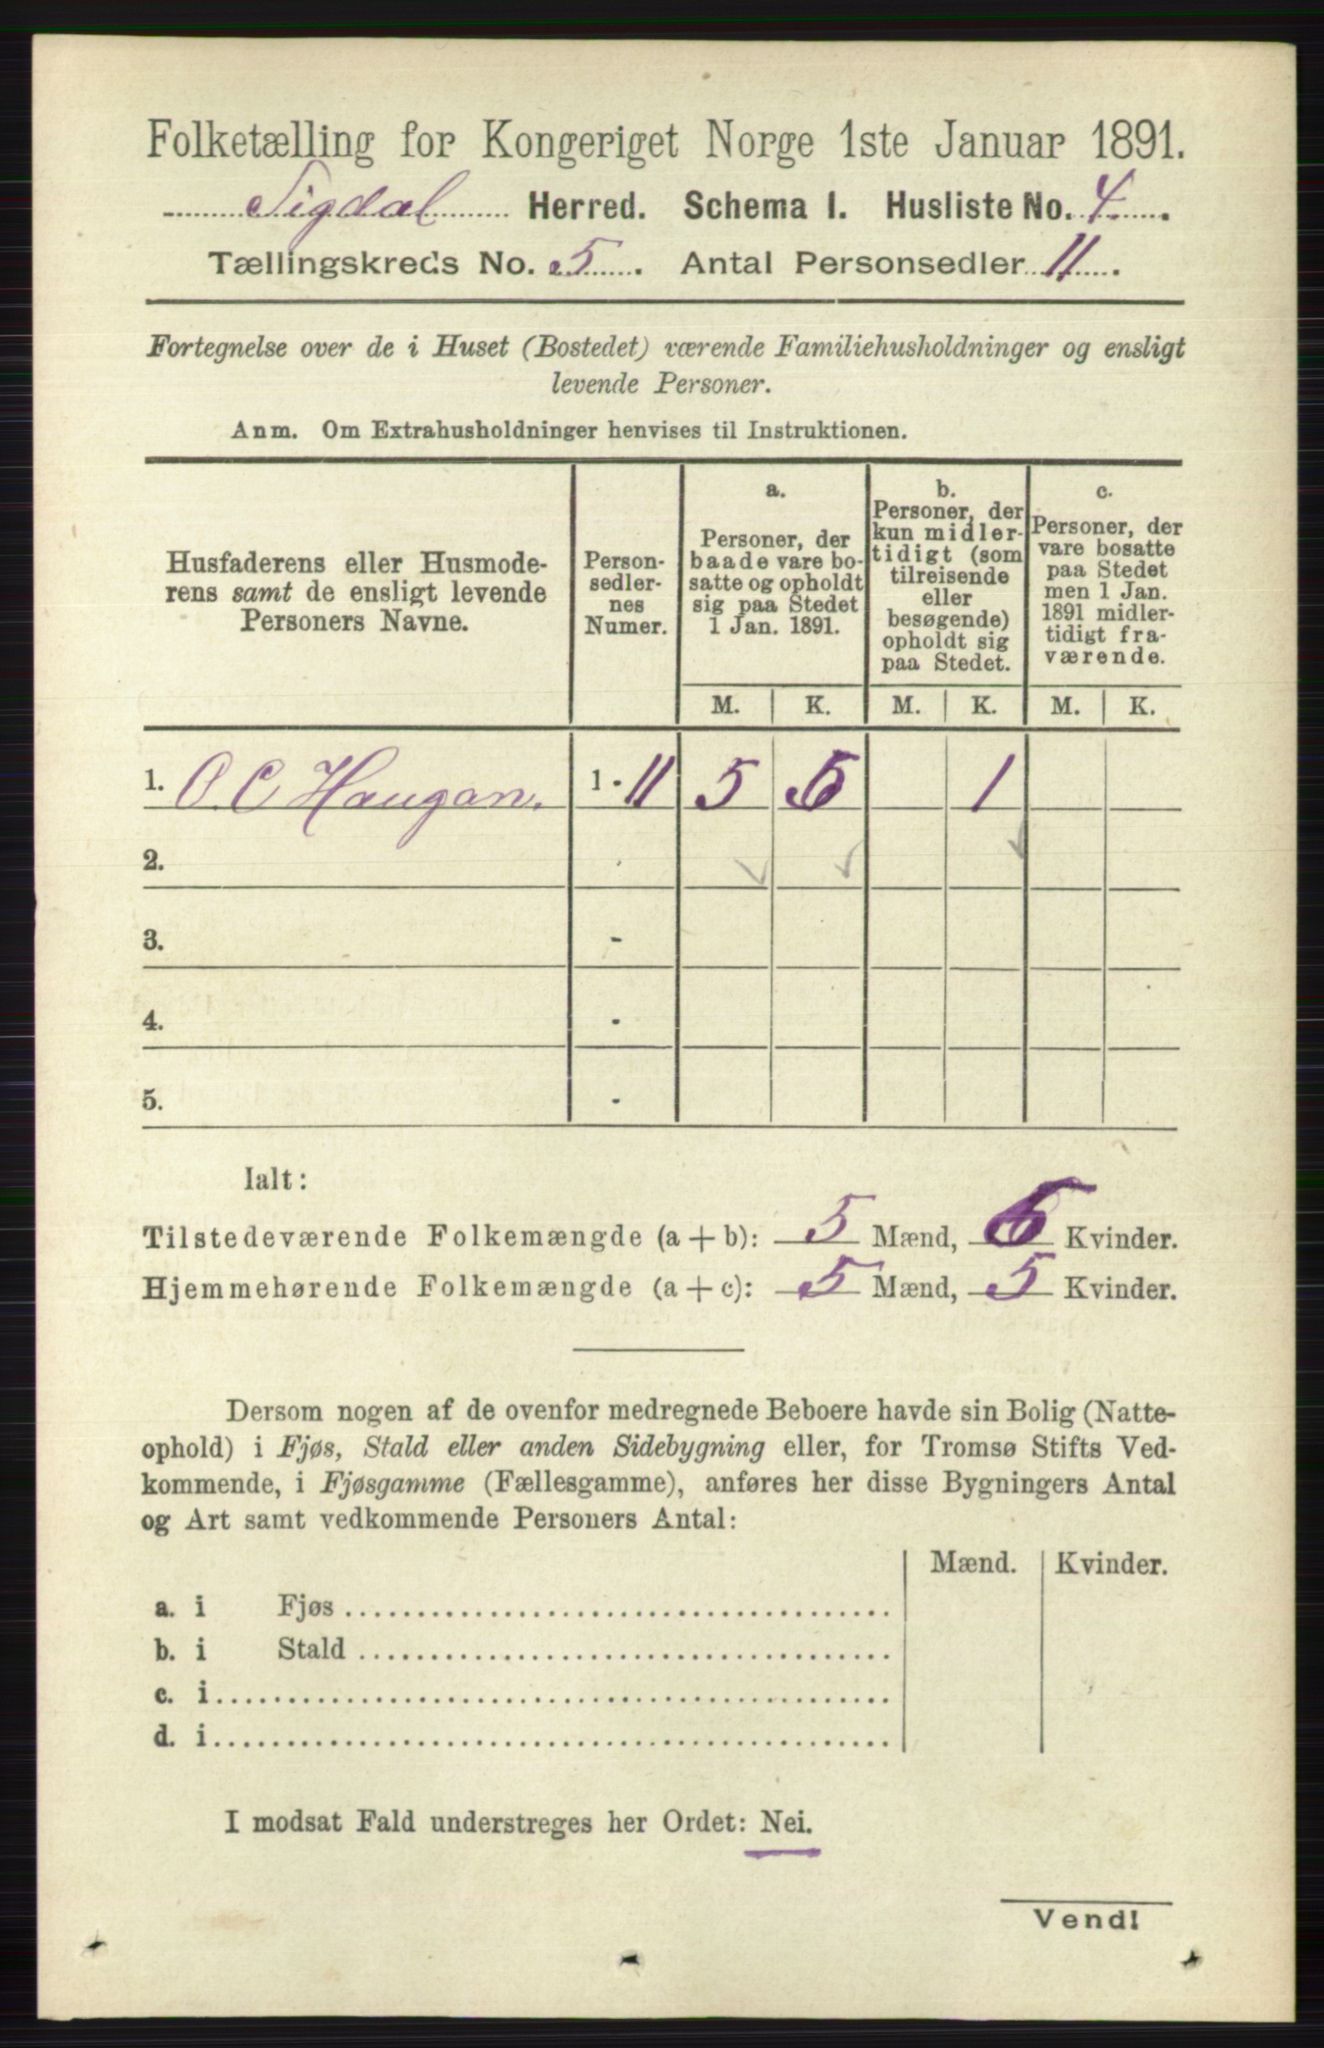 Folketælling for Kongeriget Norge 1ste Januar 1891.
Sigdal Herred. Schema I. Husliste No. 4.
Tællingskreds No. 5. Antal Personsedler 11.
Fortegnelse over de i Huset (Bostedet) værende Familiehusholdninger og ensligt
levende Personer.
Anm. Om Extrahusholdninger henvises til Instruktionen.
Husfaderens eller Husmode-
rens samt de ensligt levende
Personers Navne.
Person-
sedler-
nes
Numer.
a.
Personer, der
baade vare bo-
satte og opholdt
sig paa Stedet
1 Jan. 1891.
b.
Personer, der
kun midler-
tidigt (som
tilreisende
eller
besøgende)
opholdt sig
paa Stedet.
c.
Personer, der
vare bosatte
paa Stedet
men 1 Jan.
1891 midler-
tidigt fra-
værende.
M. K. M. K. M. K.
1. O. C. Haugan. 1 - 11 5 5 1
2.
3. -
4. -
5. -
Ialt:
Tilstedeværende Folkemængde (a + b): 5 Mænd, 6 Kvinder.
Hjemmehørende Folkemængde (a + c): 5 Mænd, 5 Kvinder.
Dersom nogen af de ovenfor medregnede Beboere havde sin Bolig (Natte-
ophold) i Fjøs, Stald eller anden Sidebygning eller, for Tromsø Stifts Ved-
kommende, i Fjøsgamme (Fællesgamme), anføres her disse Bygningers Antal
og Art samt vedkommende Personers Antal:
Mænd. Kvinder.
a. i Fjøs
b. i Stald
c. i
d. i
I modsat Fald understreges her Ordet: Nei.
Vend!